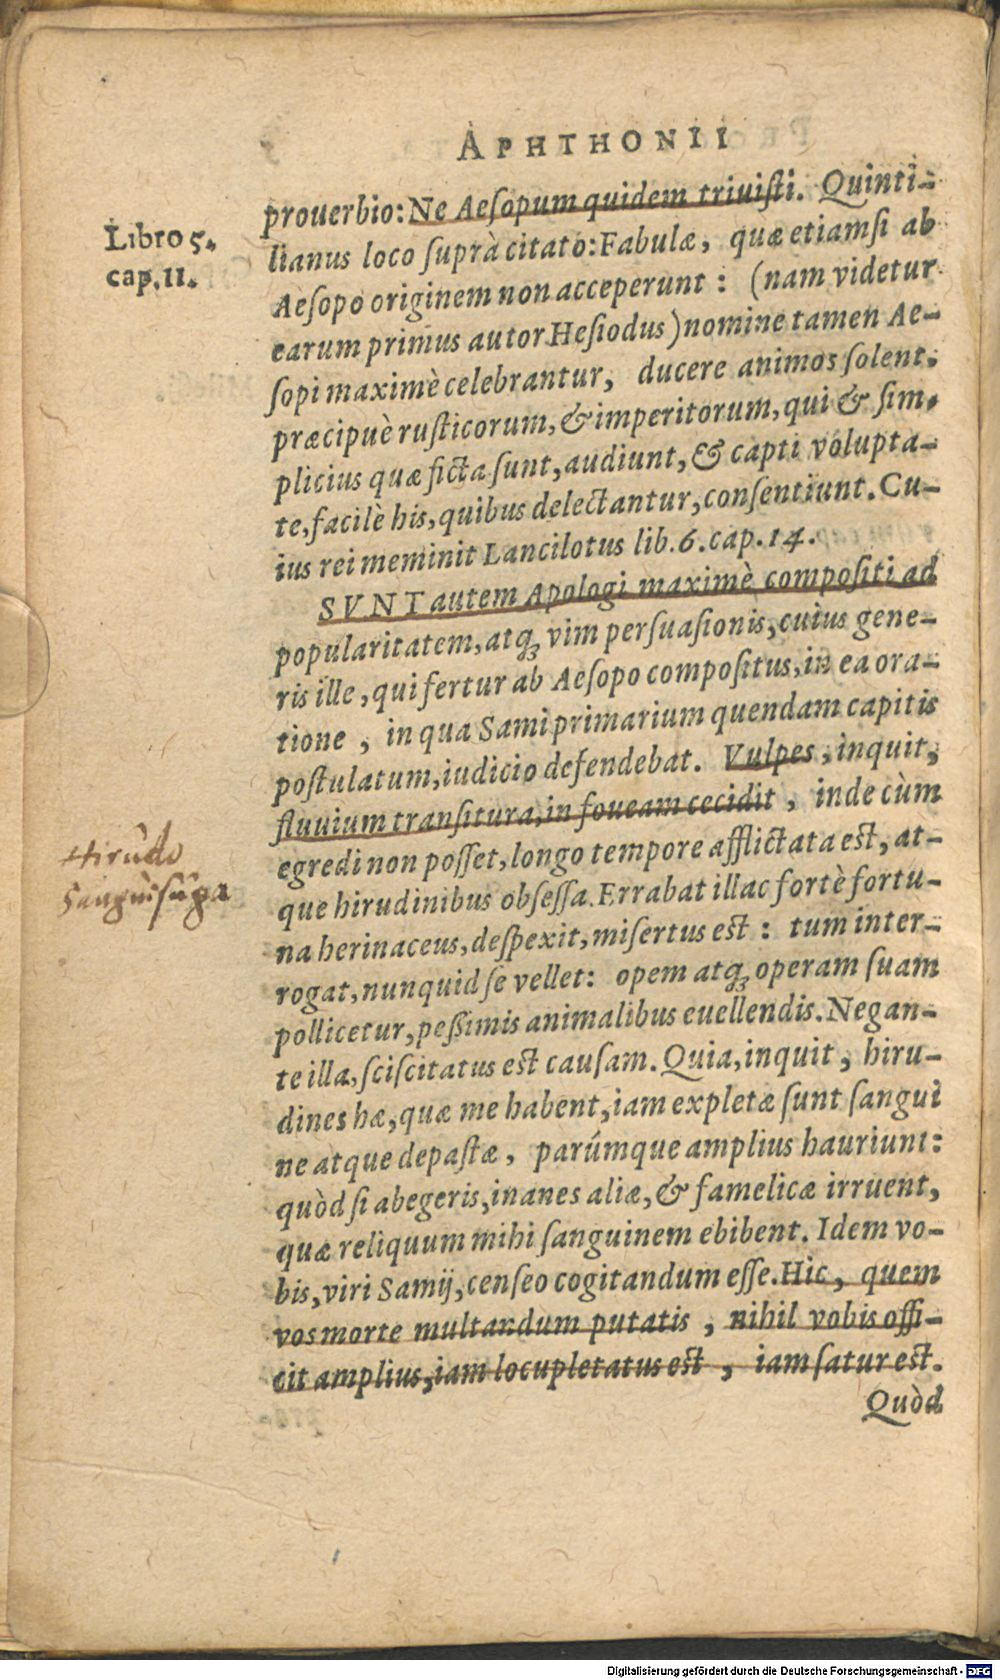 APHTHONII
prouerbio: Ne Aeſopum quidem triuiſti. Quinti-
Libro 5.
cap. 11.
lianus loco ſuprà citato: Fabulæ, quæ etiamſi ab
Aeſopo originem non acceperunt: (nam videtur
earum primus autor Heſiodus) nomine tamen Ae-
ſopi maximè celebrantur, ducere animos ſolent,
præcipuè ruſticorum, & imperitorum, qui & ſim-
plicius quæ ficta ſunt, audiunt, & capti volupta-
te, facilè his, quibus delectantur, conſentiunt. Cu-
ius rei meminit Lancilotus lib. 6. cap. 14.
SVNT autem Apologi maximè compoſiti ad
popularitatem, atq; vim perſuaſionis, cuius gene-
ris ille, qui fertur ab Aeſopo compoſitus, in ea ora-
tione, in qua Sami primarium quendam capitis
poſtulatum, iudicio defendebat. Vulpes, inquit,
fluuium tranſitura, in foueam cecidit, inde cùm
Hirudo
Sanguisuga
egredi non poſſet, longo tempore afflictata eſt, at-
que hirudinibus obſeſſa. Errabat illac fortè fortu-
na herinaceus, deſpexit, miſertus eſt: tum inter-
rogat, nunquid ſe vellet: opem atq; operam ſuam
pollicetur, peſſimis animalibus euellendis. Negan-
te illa, ſciſcitatus eſt cauſam. Quia, inquit, hiru-
dines hæ, quæ me habent, iam expletæ ſunt ſangui
ne atque depaſtæ, parúmque amplius hauriunt:
quòd ſi abegeris, inanes aliæ, & famelicæ irruent,
quæ reliquum mihi ſanguinem ebibent. Idem vo-
bis, viri Samij, cenſeo cogitandum eſſe. Hic, quem
vos morte multandum putatis, nihil vobis offi-
cit amplius, iam locupletatus eſt, iam ſatur eſt.
Quòd
Digitalisierung gefördert durch die Deutsche Forschungsgemeinschaft - DFG